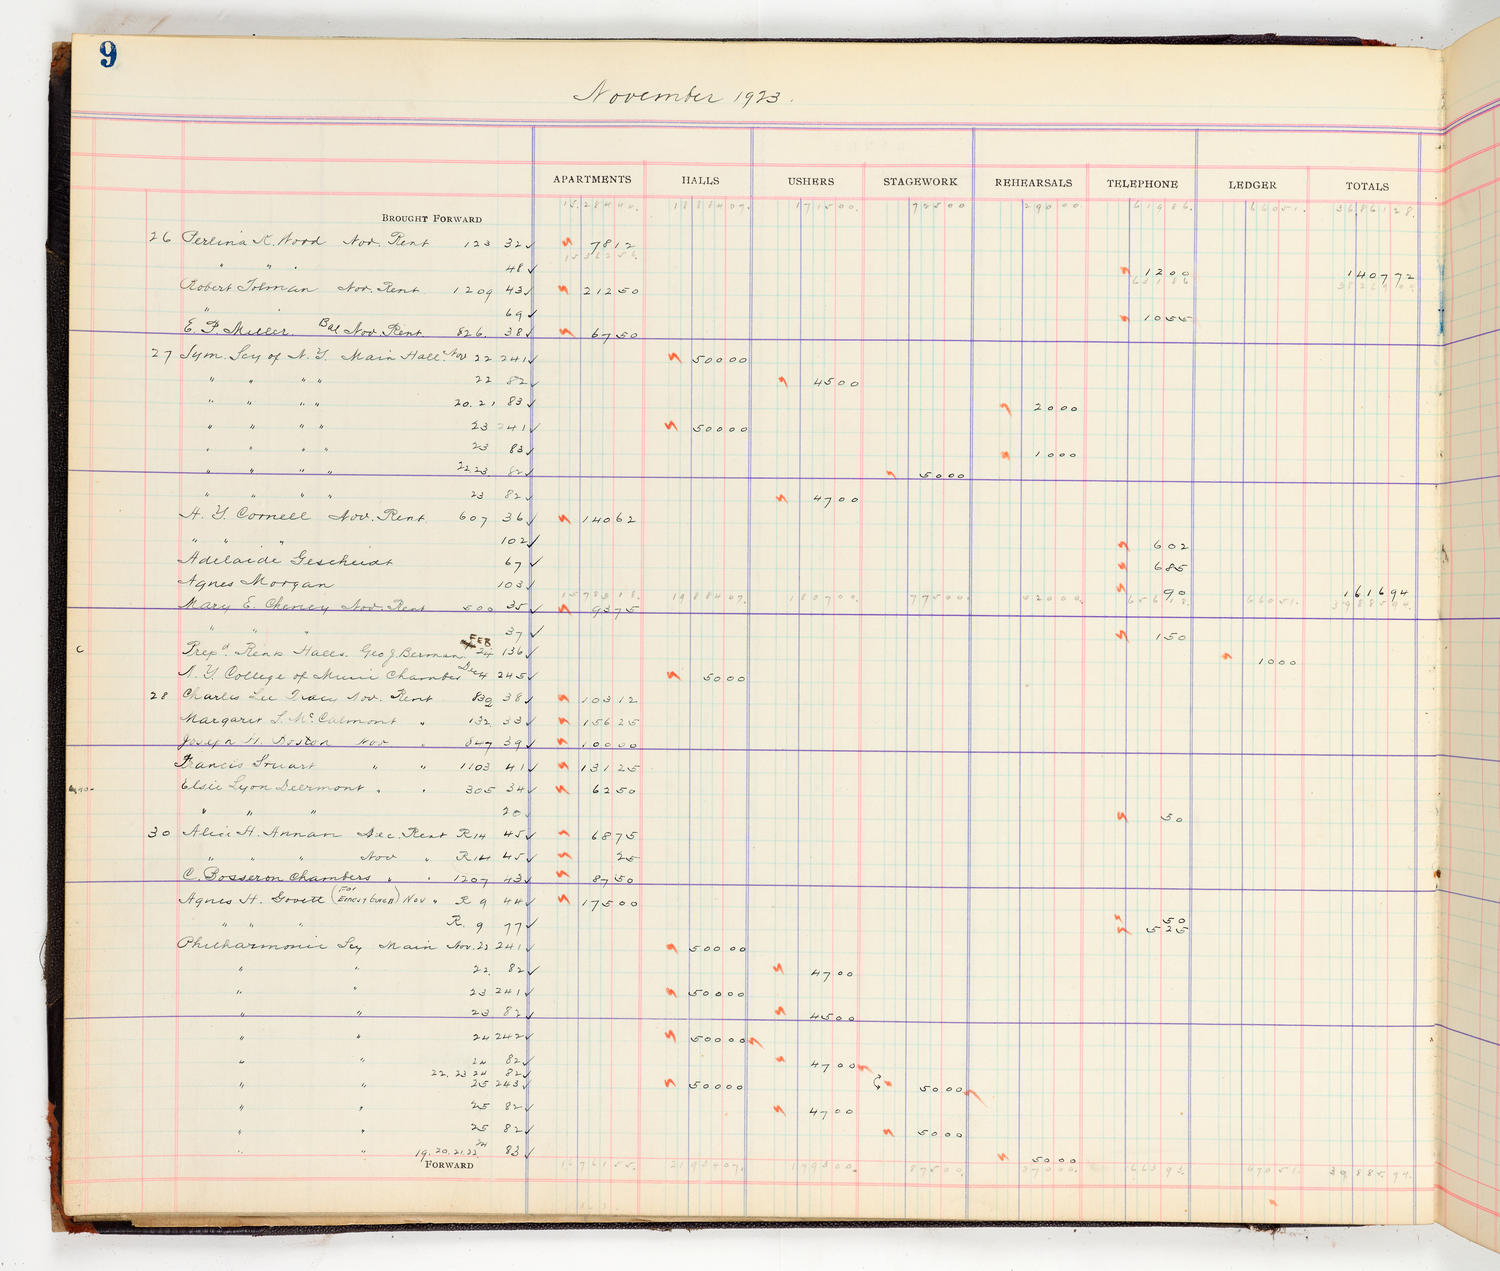 9
November 1923.
APARTMENTS HALLS USHERS STAGEWORK REHEARSALS TELEPHONE LEDGER TOTALS
BROUGHT FORWARD 15,284 40. 18884 07. 1715 00. 725 00 290 00 619 86. 660 51. 36861 28.
26 Perlina K. Nov. Rent 123 32 ✓ 78 12
" " 48 ✓ 12 00 1407 72
Robert Tolman Nov. Rent 1209 43 ✓ 212 50
" 69 ✓ 10 55
E. P. Miller. Bal Nov. Rent 826. 38 ✓ 67 50
27 Sym. Scy of N. Y. Main Hall Nov 22 241 ✓ 500 00
" " " " 22 82 ✓ 45 00
" " " " 20. 21 83 ✓ 20 00
" " " " 23 241 ✓ 500 00
" " " " 23 83 ✓ 10 00
" " " " 22.23. 82 ✓ 50 00
" " " " 23 82 ✓ 47 00
A. Y. Cornell Nov. Rent 607 36 ✓ 140 62
" " " 102 ✓ 6 02
Adelaide Gescheidt 67 ✓ 6 85
Agnes Morgan 103 ✓ 90 1616 94
Mary E. Cheney Nov. Rent 500 35 ✓ 93 75
" " " 37 ✓ 1 50
C Prepd. Rents Halls. Geo J. Berman FEB 24 136 ✓ 10 00
N. Y. College of Music Chamber Dec 4 245 ✓ 50 00
28 Charles Lee Tracy Nov. Rent 832 38 ✓ 103 12
Margaret L. McCalmont " 132 33 ✓ 156 25
Joseph H. Nov " 847 39 ✓ 100 00
Francis Stuart " " 1103 41 ✓ 131 25
Elsie Lyon Deermont " " 305 34 ✓ 62 50
" " " 20 50
30 Alice H. Annan Dec. Rent R14 45 ✓ 68 75
" " " Nov " R14 45 ✓ 25
C. Bosseron Chambers " " 1207 43 ✓ 87 50
Agnes H. Govett (For) Nov " R 9 44 ✓ 175 00
" " " R. 9 77 ✓ 50 5 25
Philharmonic Scy Main Nov. 22 241 ✓ 500 00
" " 22. 82 ✓ 47 00
" " 23 241 ✓ 500 00
" " 23 82 ✓ 45 00
" " 24 242 ✓ 500 00
" " 24 82 ✓ 47 00
22. 23 24 82 ✓ 50 00
" " 25 243 ✓ 500 00
" " 25 82 ✓ 47 00
" " 25 82 ✓ 50 00
" " 19. 20. 21. 22 24 83 ✓ 50 00
FORWARD 16761 55. 21934 07. 1993 00. 875 00. 370 00. 663 93. 670 51. 39885 94.